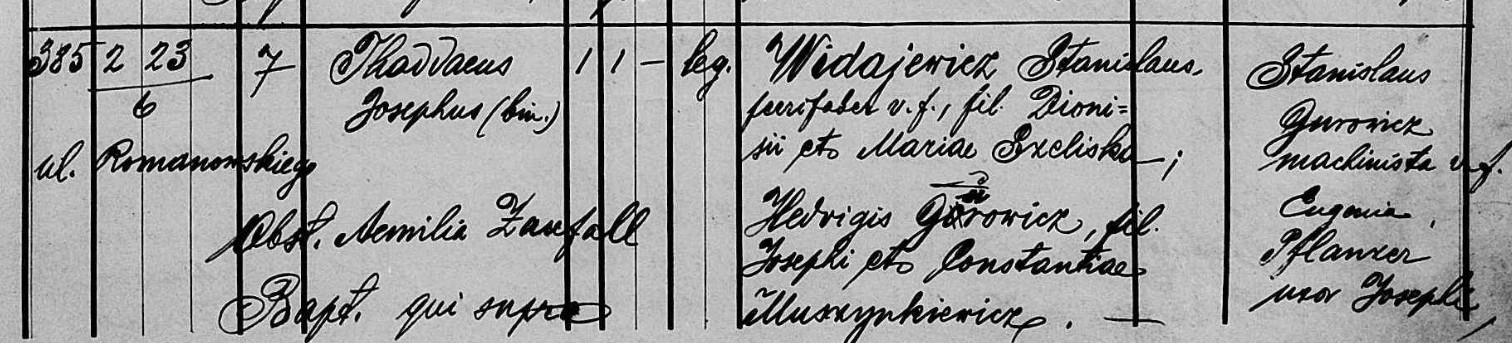 385 2 23/6 7 Thaddaeus 1 1 — leg. Widajewicz Stanislaus, Stanislaus
Josephus (bin.) ferrifaber v. f., fil. Dioni= Gurowicz
ul. Romanowskiego sii et Mariae Szeliska; machinista v. f.
Obst. Aemilia Zanfall Hedvigis Gurowicz, fil. Eugenia
Josephi et Constantiae Pflanzer
Bapt. qui supra Muszynkiewicz. — uxor Josephi